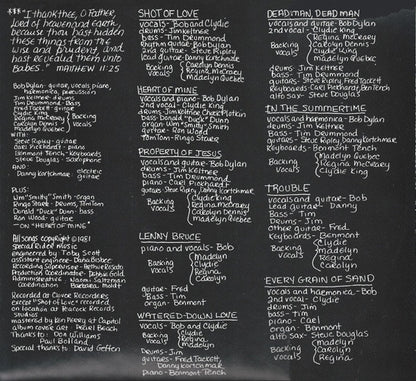 "I thank thee, O Father,
lord of heaven and earth,
because thou hast hidden
these things from the
wise and prudent, and
hast revealed them unto
babes." MATTHEW 11:25
Bob Dylan guitar, vocals, piano,
harmonica, percussion
Jim Keltner drums
Tim Drummond, Bass
Fred Tackett guitar
Clydie King
Regina McCrary
Carolyn Dennis
Madelyn Quebec
Backing
Vocals
WITH:
Steve Ripley - guitar
Carl Pickhardt - piano
Benmont Tench - Keyboards
Steve Douglas - Saxophone
AND
Danny Kortchmar electric
guitar
PLUS:
Wm "Smitty" Smith - organ
Ringo Starr - drums, Tom Tom
Donald "Duck" Dunn - bass
Ron Wood guitar
- ON "HEART OF MINE"
All Songs copyright © 1981
Special Rider Music
engineered by Toby Scott
assistant engineer: Dana Bisbee
Recording Supervisor - Arthur Rosato
Naomi Saltzman
Coordination: Barbara Moffit
Recorded at Clover Recorders
except "Shot of Love" recorded
on location at Peacock Records
Studios
mastered by Ken Perry at Capitol
album cover art: Pearl Beach
Thanks to: Don Williams
Special thanks to: David Geffen
SHOT OF LOVE
vocals - Bob and Clydie
drums - Jim Keltner
bass - Tim Drummond
rhythm guitar - Bob Dylan
guitar Steve Ripley
lead guitar Danny Kortchmar
Backing
vocals
Carolyn Dennis
Regina McCrary
Madelyn Quebec
HEART OF MINE
vocals and piano - Bob Dylan
2nd vocal - Clydie King
drums - Jim Keltner, Chuck Plotkin
bass - Donald "Duck" Dunn
organ Wm "Smitty" Smith
guitar Ron Wood
Tom Tom - Ringo Starr
PROPERTY OF JESUS
vocals and guitar - Bob Dylan
drums - Jim Keltner
bass - Tim Drummond
piano - Carl Pickhardt
guitars Steve Ripley, Danny Kortchmar
Backing
vocals
Clydie King
Regina McCrary
Carolyn Dennis
Madelyn Quebec
LENNY BRUCE
piano and vocals - Bob
Backing
vocals
Madelyn
Clydie
Regina
Carolyn
guitar - Fred
Bass - Tim
drums - Jim
organ - Benmont
WATERED-DOWN LOVE
vocals - Bob and Clydie
Backing
vocals
Clydie
Regina
Madelyn
drums - Jim
guitars - Fred Tackett,
Danny Kortchmar
piano - Benmont Tench
DEAD MAN, DEAD MAN
vocals and guitar - Bob Dylan
2nd vocal - Clydie King
Backing
vocals
Regina McCrary
Carolyn Dennis
Clydie King
Madelyn Quebec
drums Jim Keltner
bass - Tim Drummond
guitars - Steve Ripley, Fred Tackett
Keyboards Carl Pickhardt, Ben Tench
alto sax - Steve Douglas
IN THE SUMMERTIME
vocals and harmonica - Bob Dylan
drums - Jim Keltner
bass - Tim Drummond
guitars - Steve Ripley, Danny Kortchmar
Keyboards - Benmont Tench
Backing
vocals
Madelyn Quebec
Regina McCrary
Clydie King
TROUBLE
vocals and guitar - Bob
Lead guitar - Danny
Bass - Tim
Drums - Jim
other guitar - Fred
Keyboards - Benmont
Backing
vocals
Clydie
Madelyn
Regina
Carolyn
EVERY GRAIN OF SAND
vocals and harmonica - Bob
2nd vocal - Clydie
drums - Jim
bass - Tim
piano - Carl
organ - Benmont
alto sax - Steve Douglas
Backing
vocals
Madelyn
Clydie
Carolyn
Regina